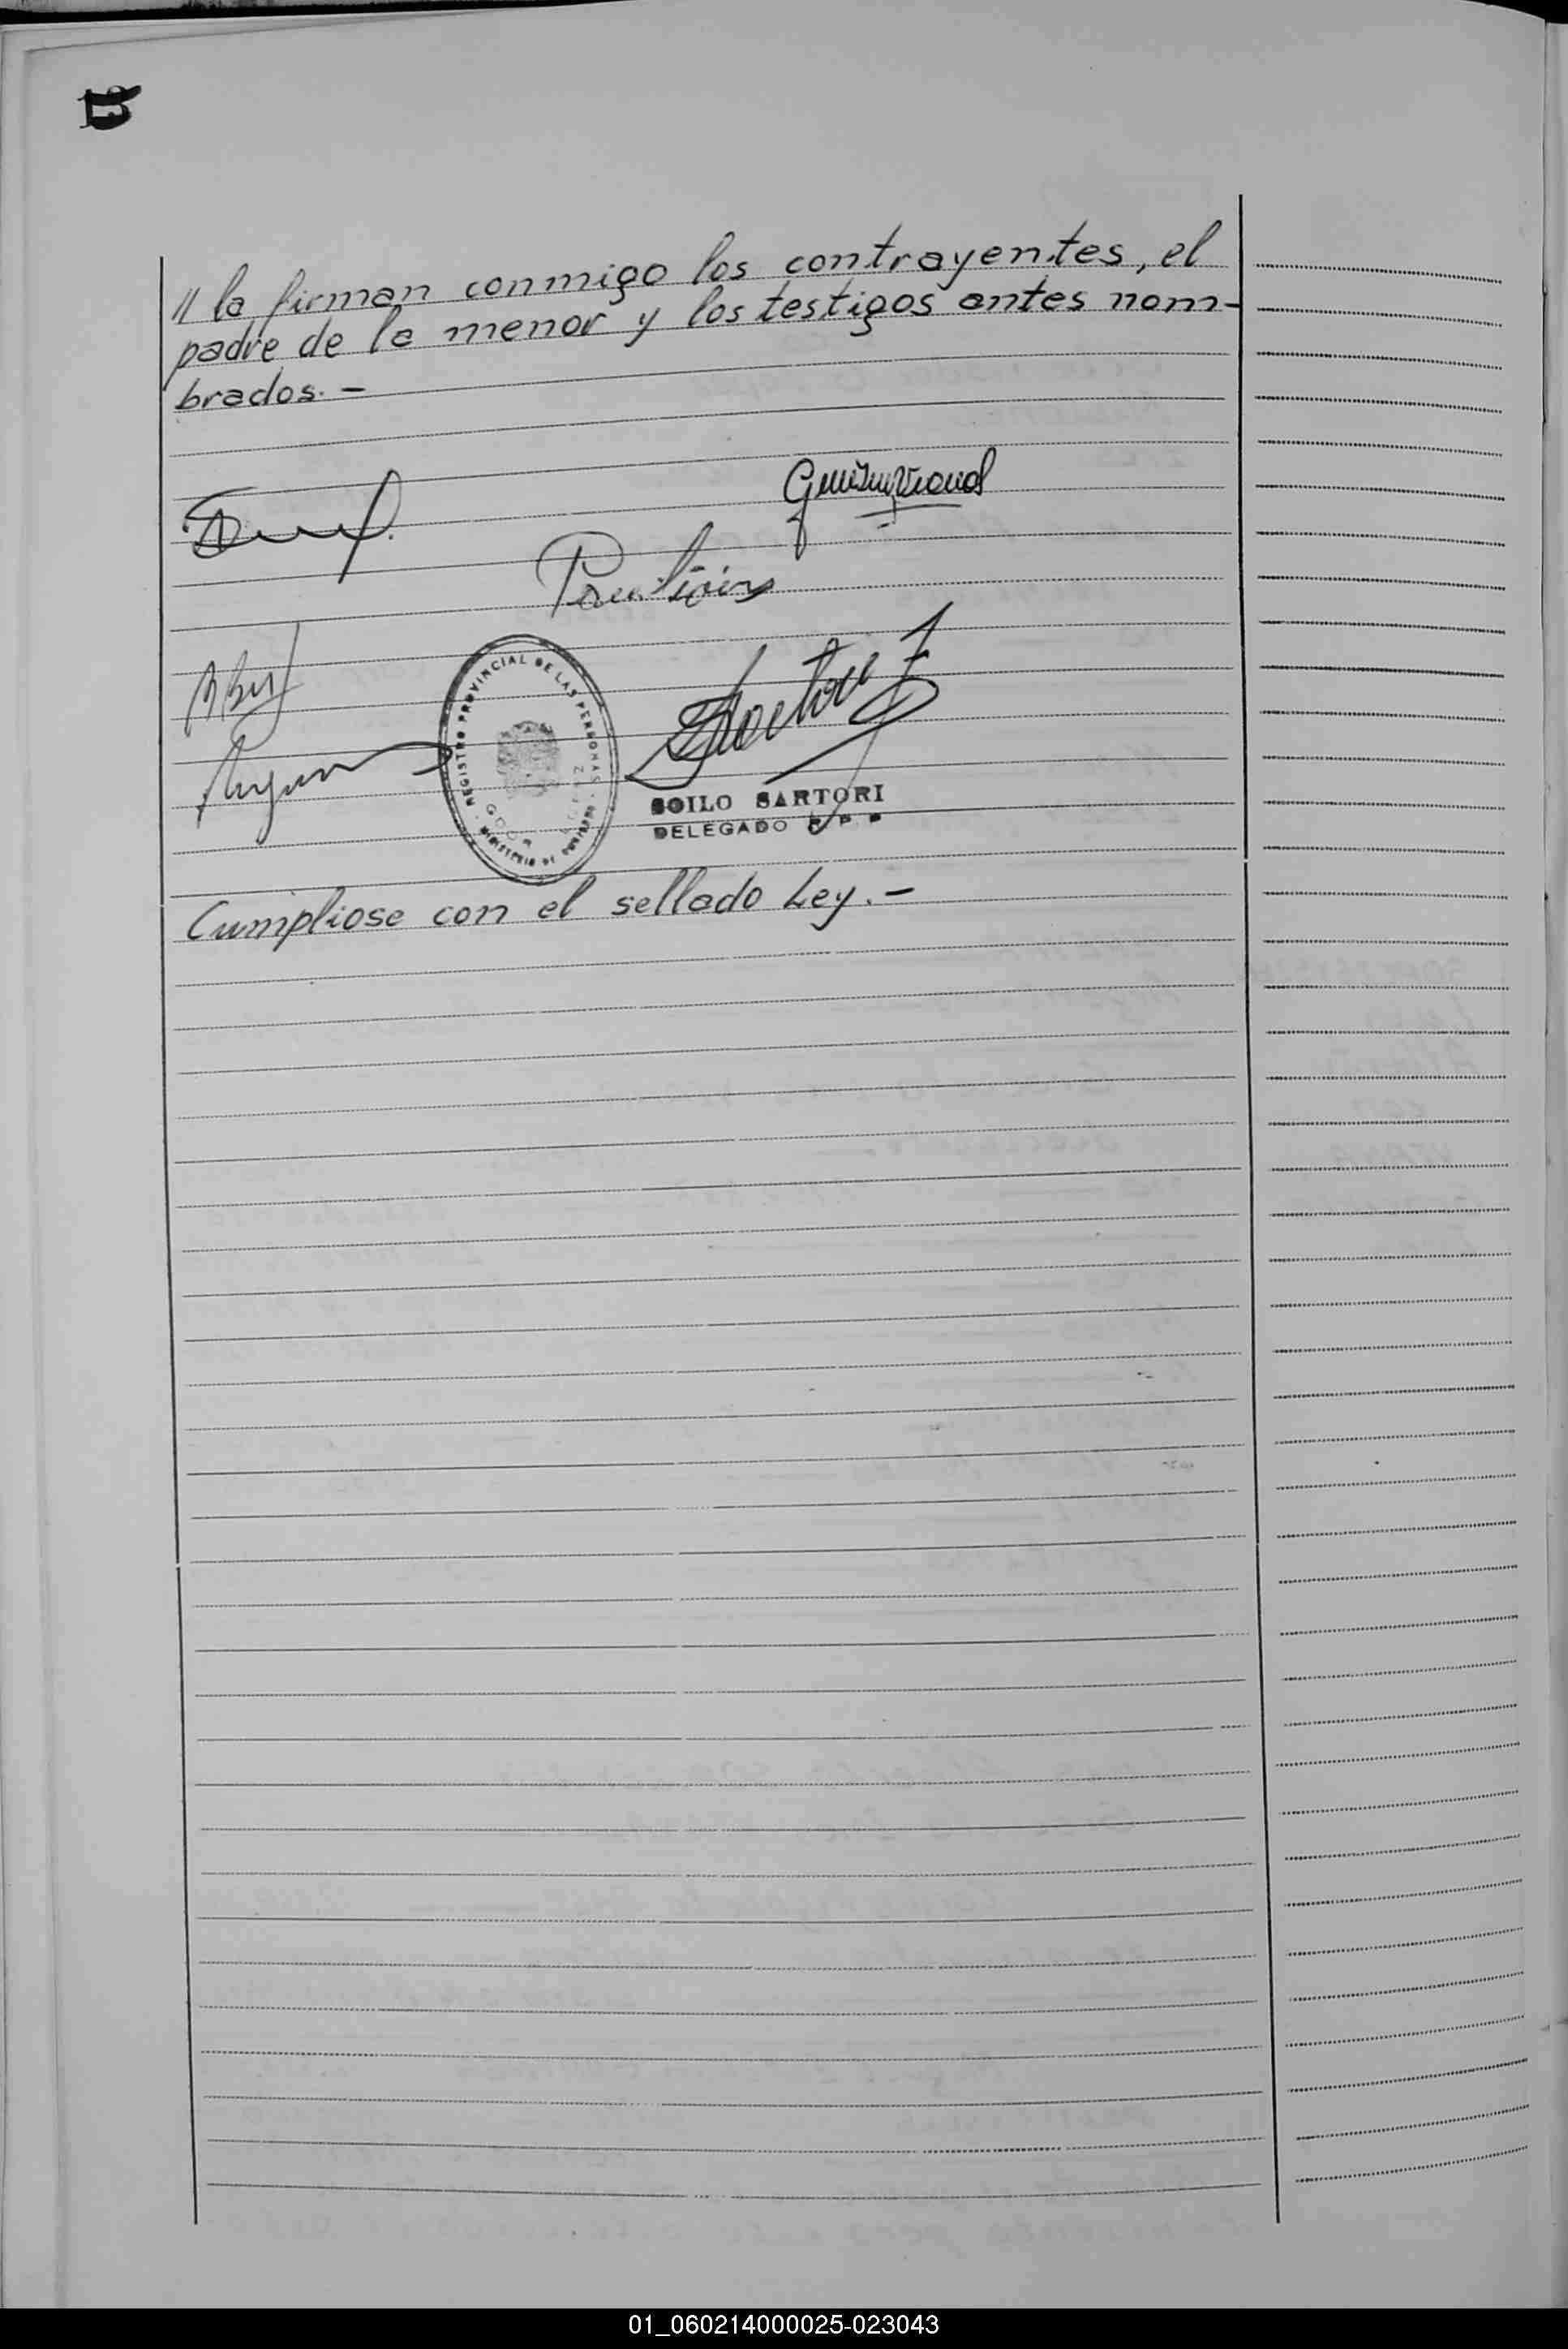 13
// la firman conmigo los contrayentes, el
padre de la menor y los testigos antes nom-
brados. -
REGISTRO PROVINCIAL DE LAS PERSONAS
MINISTERIO DE GOBIERNO
GOYA
SOILO SARTORI
DELEGADO R P P
Cumpliose con el sellado Ley. -
01_060214000025-023043